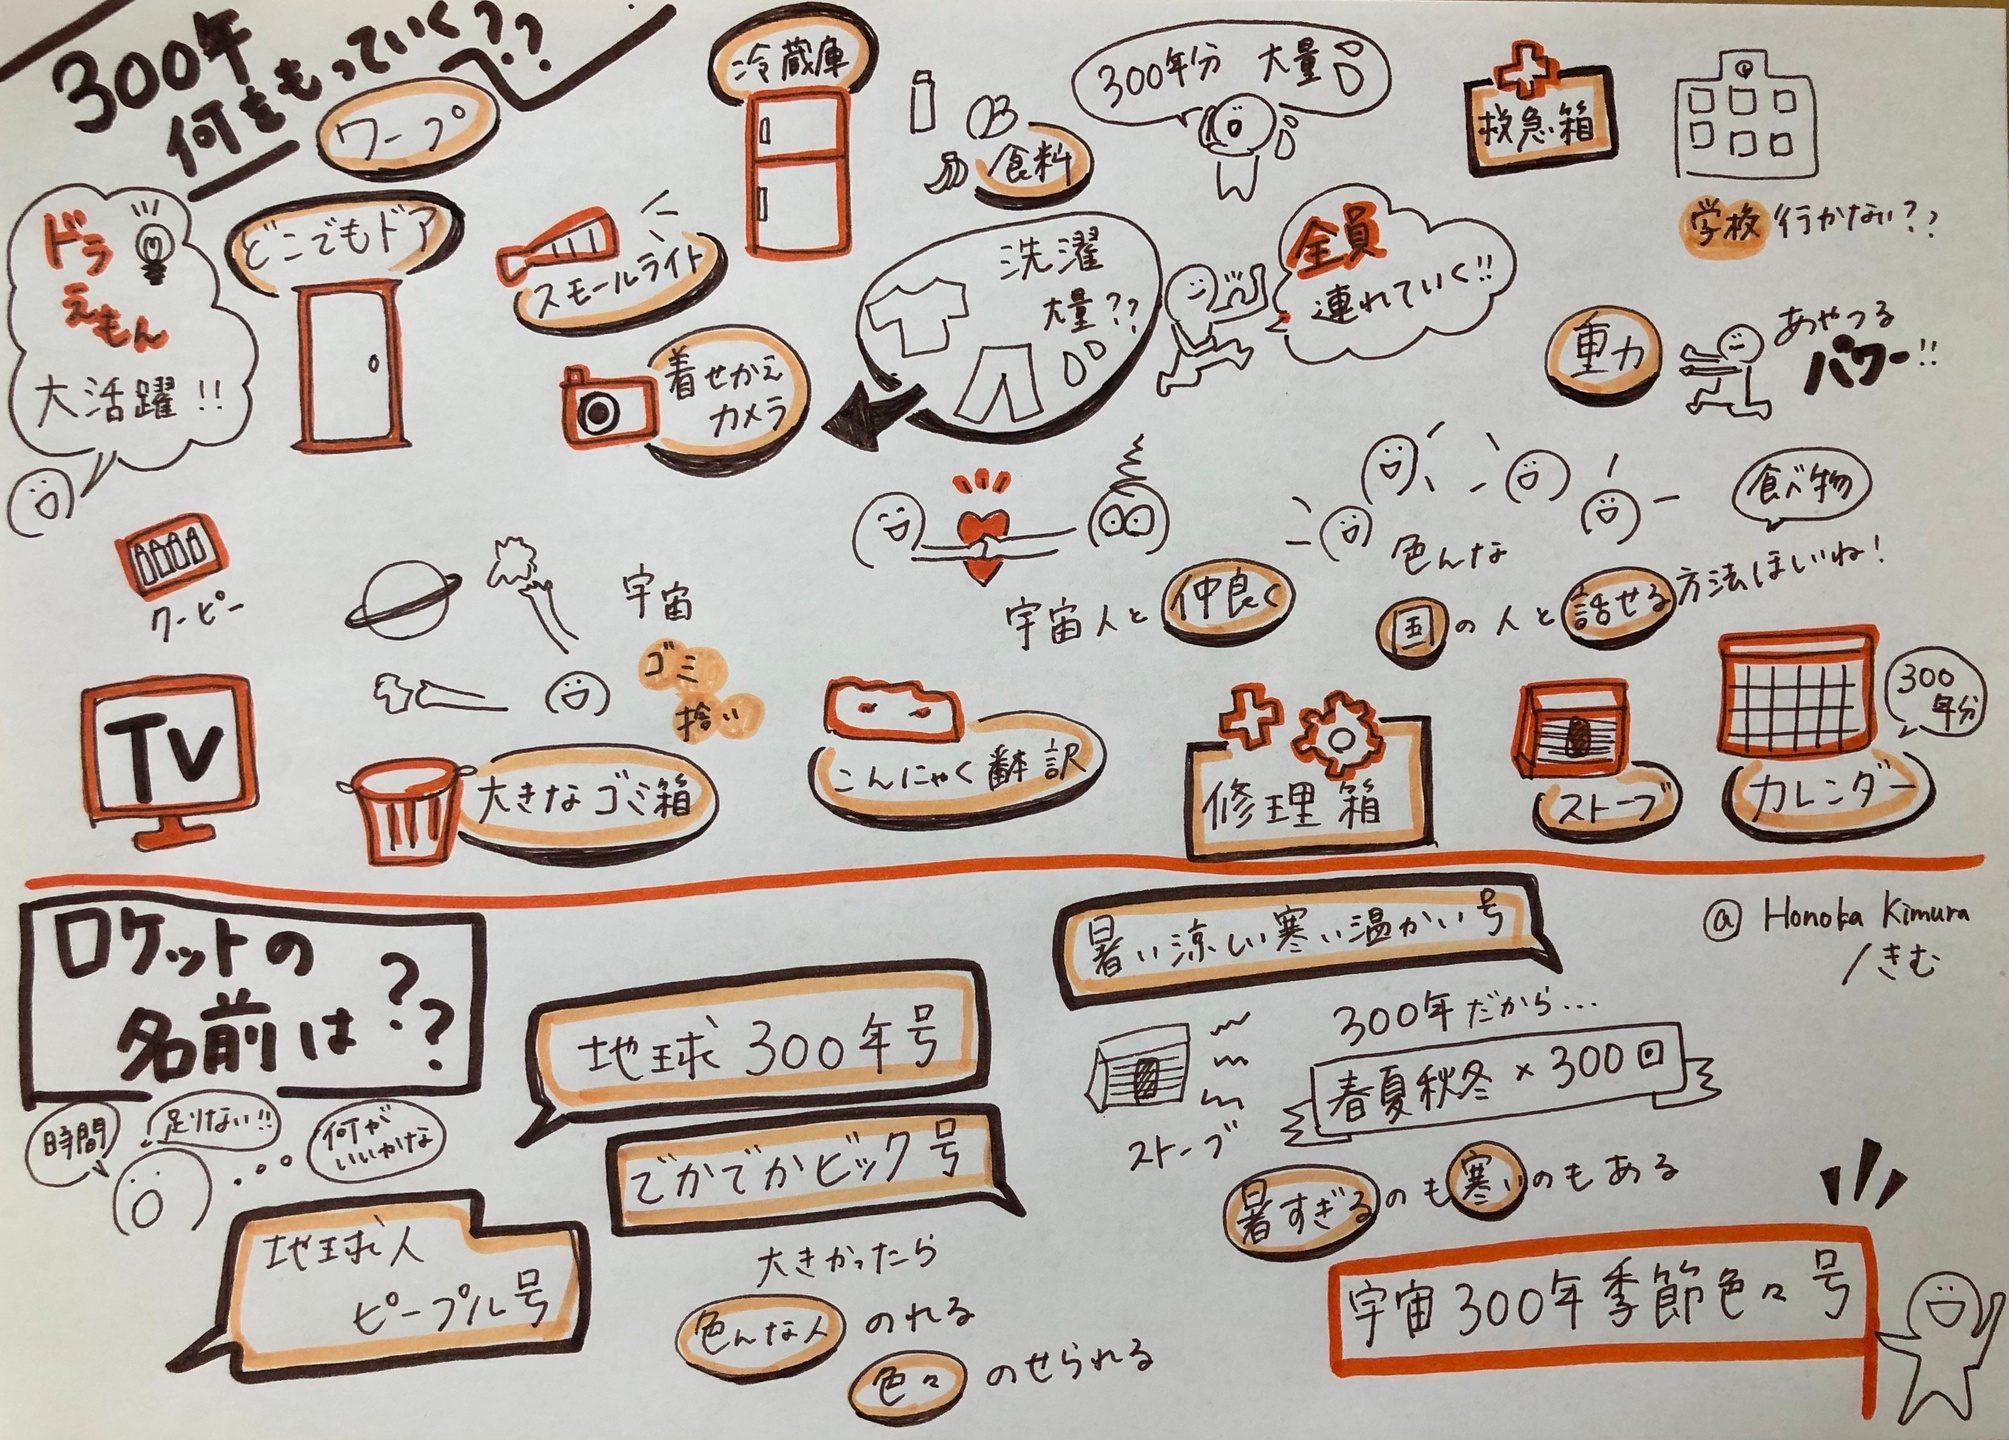 300年
何をもっていく??
ワープ
冷蔵庫
食料
300年分 大量
救急箱
学校行かない??
ドラ
えもん
大活躍!!
どこでもドア
スモールライト
着せかえ
カメラ
洗濯
大量??
全員
連れていく!!
重力
あやつる
パワー!!
クーピー
宇宙
ゴミ
拾い
宇宙人と仲良く
色んな
国の人と話せる方法ほしいね!
食べ物
TV
大きなゴミ箱
こんにゃく翻訳
修理箱
ストーブ
カレンダー
300
年分
ロケットの
名前は??
時間
足りない!!
何が
いいかな
地球300年号
でかでかビック号
地球人
ピープル号
大きかったら
色んな人のれる
色々のせられる
暑い涼しい寒い温かい号
ストーブ
300年だから...
春夏秋冬×300回
暑すぎるのも寒いのもある
宇宙300年季節色々号
@ Honoka Kimura
/きむ